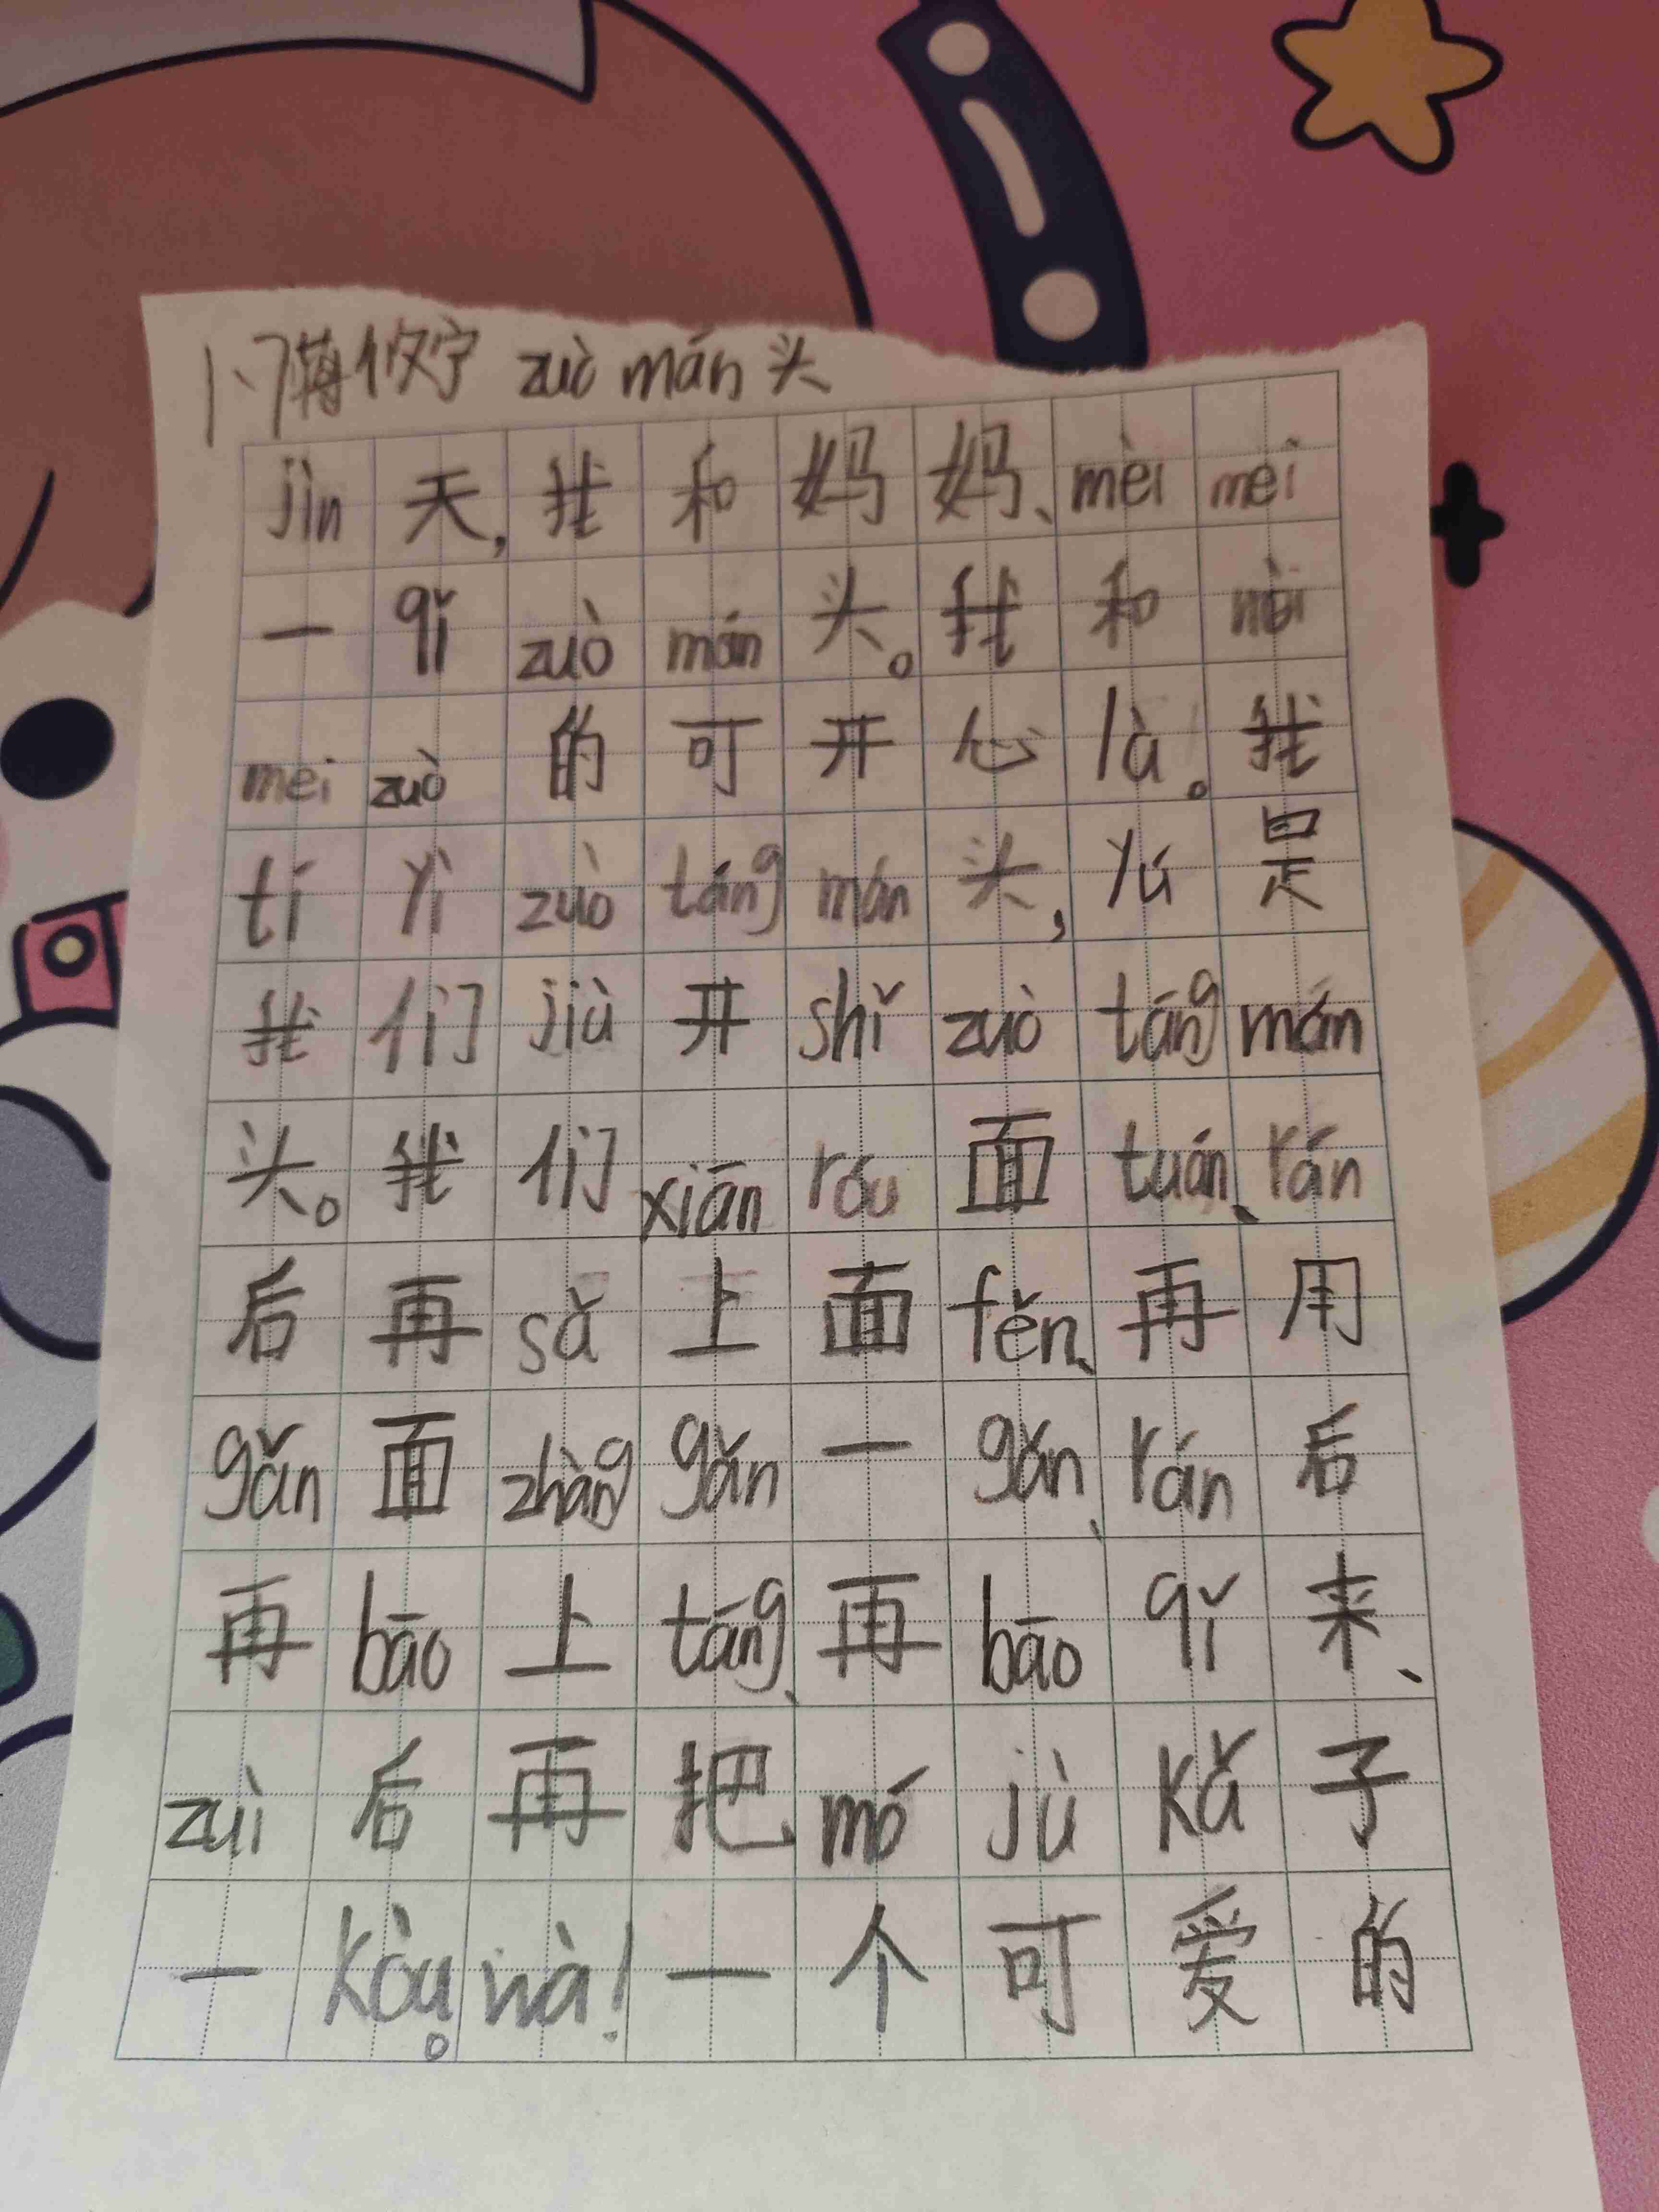 zuò mán 头
jìn 天,我和妈妈、mèi mei
一 qǐ zuò mán 头。我和 mèi
mei zuò 的可开心 là。我
tí yì zuò táng mán 头,yú 是
我们 jiù 开 shǐ zuò táng mán
头。我们 xiān róu 面 tuán、rán
后再 sǎ 上面 fěn、再用
gǎn 面 zhàng gǎn 一 gǎn、rán 后
再 bāo 上 táng、再 bāo qǐ 来、
zuì 后再把 mó jù kǎ 子
一 kòu。wà!一个可爱的